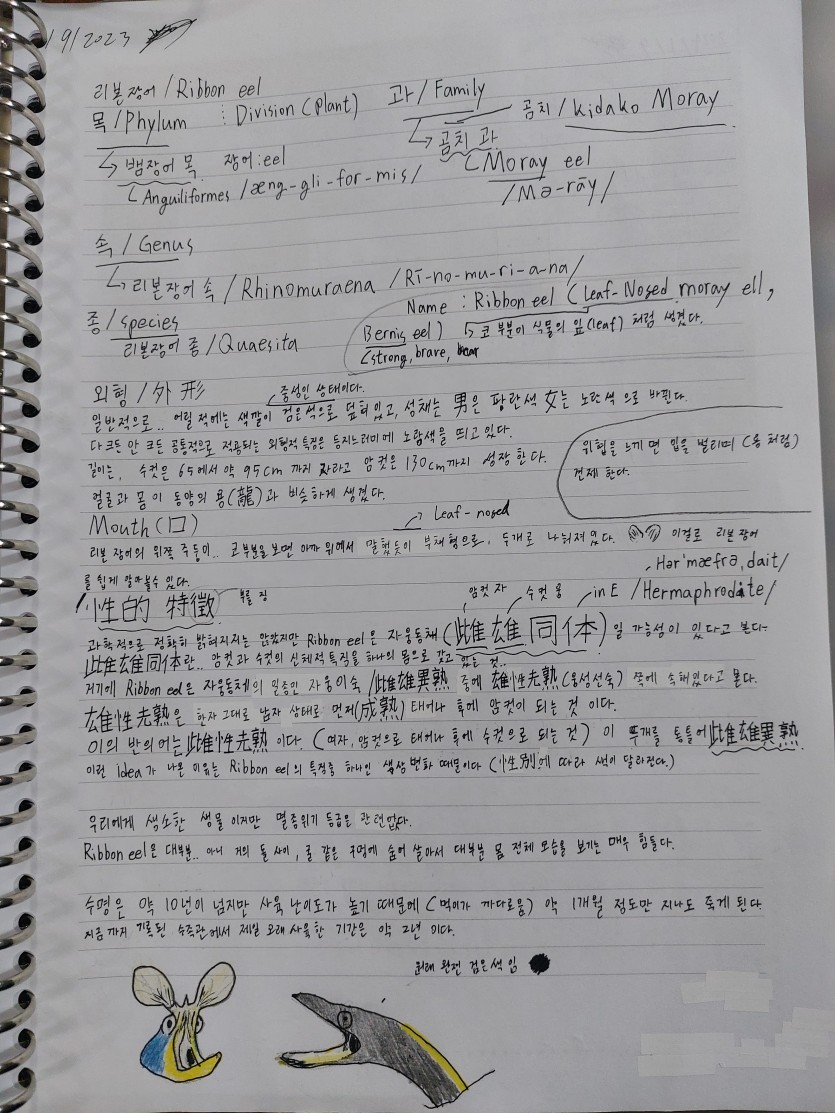 /9/2023
리본장어/Ribbon eel
목/Phylum ⋮ Division(plant) 과/Family 곰치/kidako Moray
↳ 뱀장어 목. 장어:eel ↳ 곰치 과
(Anguiliformes /æng-gli-for-mis/ (Moray eel
/Mə-rāy/
속/Genus
↳ 리본장어 속/Rhinomuraena /Rī-no-mu-ri-a-na/
Name : Ribbon eel (Leaf-Nosed moray ell,
종/species Bernis eel) ↳ 코 부분이 식물의 잎(leaf) 처럼 생겼다.
리본장어 종/Quaesita (strong, brave,
외형/外形 중성인 상태이다.
일반적으로.. 어릴 적에는 색깔이 검은색으로 덮혀있고, 성채는 男은 파란색 女는 노란색 으로 바뀐다.
다 크든 안 크든 공통적으로 적용되는 외형적 특징은 등지느러미에 노랑색을 띄고 있다.
위협을 느끼면 입을 벌리며 (용 처럼)
길이는, 수컷은 65에서 약 95cm 까지 자라고 암컷은 130cm까지 성장 한다.
견제 한다.
얼굴과 몸이 동양의 용(龍)과 비슷하게 생겼다.
Mouth(口) Leaf-nosed
리본 장어의 위쪽 주둥이.. 코부분을 보면 아까 위에서 말했듯이 부채형으로, 두개로 나뉘져있다. 이걸로 리본 장어
를 쉽게 알아볼수 있다. Hər'mæfrə,dait/
性的 特徵 부를 징 암컷 자 수컷 웅 in E /Hermaphrodite/
과학적으로 정확히 밝혀지지는 않았지만 Ribbon eel은 자웅동체(雌雄同体)일 가능성이 있다고 본다.
雌雄同体란.. 암컷과 수컷의 신체적 특징을 하나의 몸으로 갖고 있는 것..
거기에 Ribbon eel은 자웅동체의 일종인 자웅이숙/雌雄異熟 중에 雄性先熟(웅성선숙) 쪽에 속해있다고 본다.
雄性先熟은 한자 그대로 남자 상태로 먼저(成熟) 태어나 후에 암컷이 되는 것 이다.
이의 반의어는 雌性先熟 이다. (여자, 암컷으로 태어나 후에 수컷으로 되는 것) 이 두개를 통틀어 雌雄異熟
이런 idea가 나온 이유는 Ribbon eel의 특징중 하나인 색상변화 때문이다 (性別에 따라 색이 달라진다.)
우리에게 생소한 생물 이지만 멸종위기 등급은 관련없다.
Ribbon eel은 대부분.. 아니 거의 돌 사이, 굴 같은 구멍에 숨어 살아서 대부분 몸 전체 모습을 보기는 매우 힘들다.
수명은 약 10년이 넘지만 사육 난이도가 높기 때문에 (먹이가 까다로움) 약 1개월 정도만 지나도 죽게 된다
지금까지 기록된 수족관에서 제일 오래 사육한 기간은 약 2년 이다.
원래 완전 검은색 임